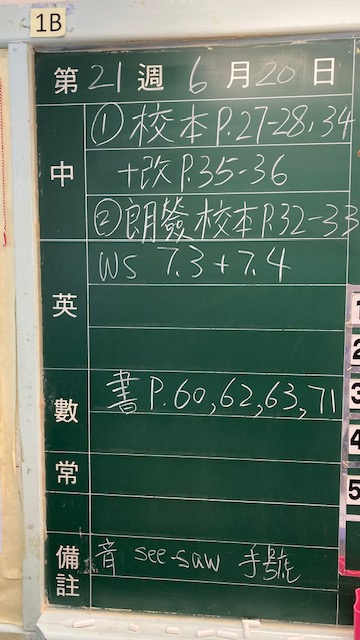 1B
第 21 週 6 月 20 日
中
① 校本 P.27-28,34
+改 P.35-36
② 朗發校本 P.32-33
英
WS 7.3+7.4
數
書 P.60,62,63,71
常
備註
音 see-saw 手號
1
2
3
4
5